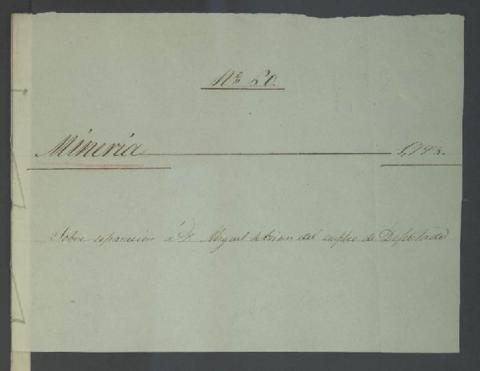 Nº 50.
Minería 179
Sobre separacion á D. Miguel del empleo de Diputado